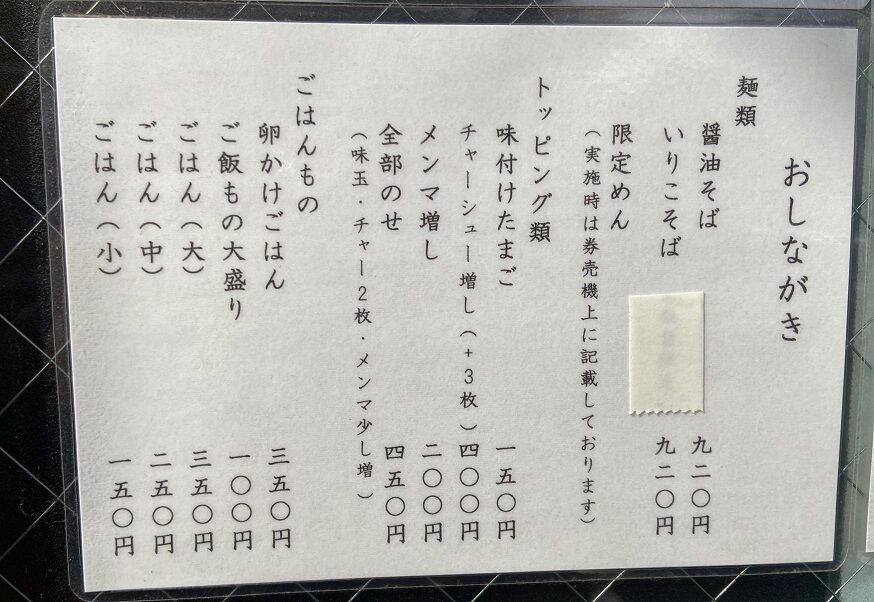 おしながき
麺類
醤油そば 九二〇円
いりこそば 九二〇円
限定めん
（実施時は券売機上に記載しております）
トッピング類
味付けたまご 一五〇円
チャーシュー増し（+3枚）四〇〇円
メンマ増し 二〇〇円
全部のせ 四五〇円
（味玉・チャー2枚・メンマ少し増）
ごはんもの
卵かけごはん 三五〇円
ご飯もの大盛り 一〇〇円
ごはん（大） 三五〇円
ごはん（中） 二五〇円
ごはん（小） 一五〇円